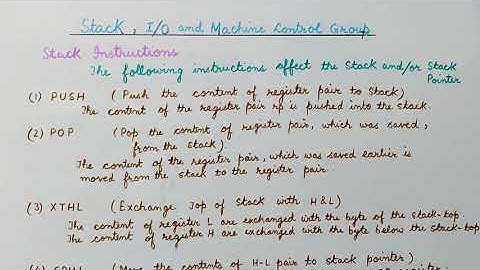 Stack, I/O and Machine Control Group
Stack Instructions
The following instructions affect the Stack and/or Stack
Pointer
(1) PUSH (Push the content of register pair to Stack)
The content of the register pair rp is pushed into the stack.
(2) POP (Pop the content of register pair, which was saved,
from the stack)
The content of the register pair, which was saved earlier is
moved from the stack to the register pair.
(3) XTHL (Exchange Top of Stack with H&L)
The content of register L are exchanged with the byte of the stack-top.
The content of register H are exchanged with the byte below the stack-top.
(4) SPHL (Move the contents of H-L pair to stack pointer)